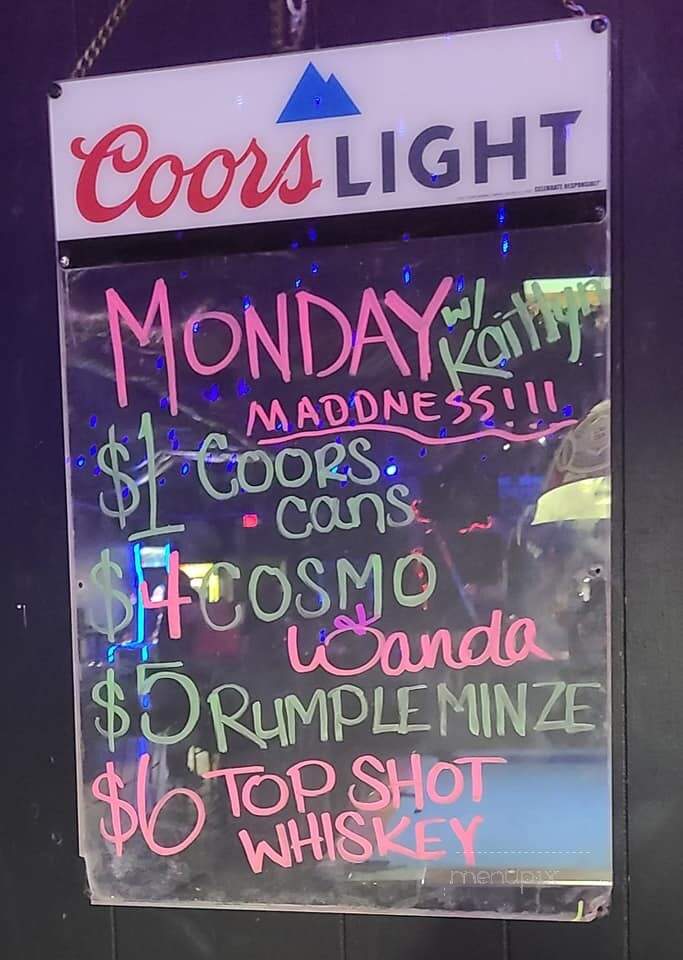 Coors LIGHT
CELEBRATE RESPONSIBLY
MONDAY w/ Kaitlyn
MADDNESS!!!
$1 COORS
cans
$4 COSMO
Wanda
$5 RUMPLEMINZE
$6 TOP SHOT
WHISKEY
menupix